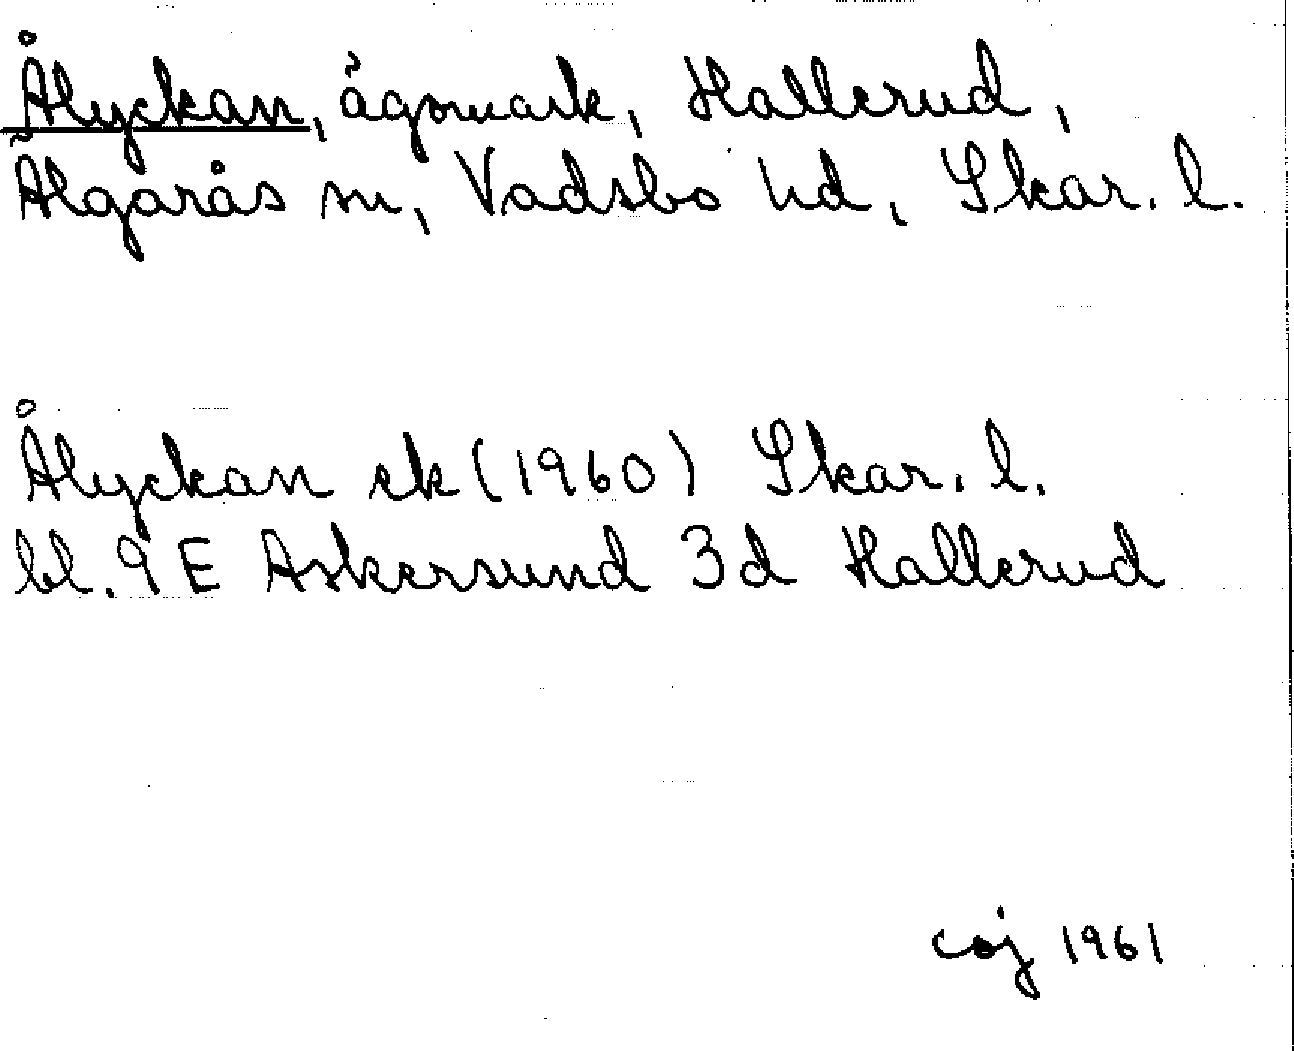 Ålyckan, ägomark, Hallerud,
Älgarås sn, Vadsbo hd, Skar. l.
Ålyckan ek (1960) Skar. l.
bl. 9 E Askersund 3d Hallerud
coj 1961